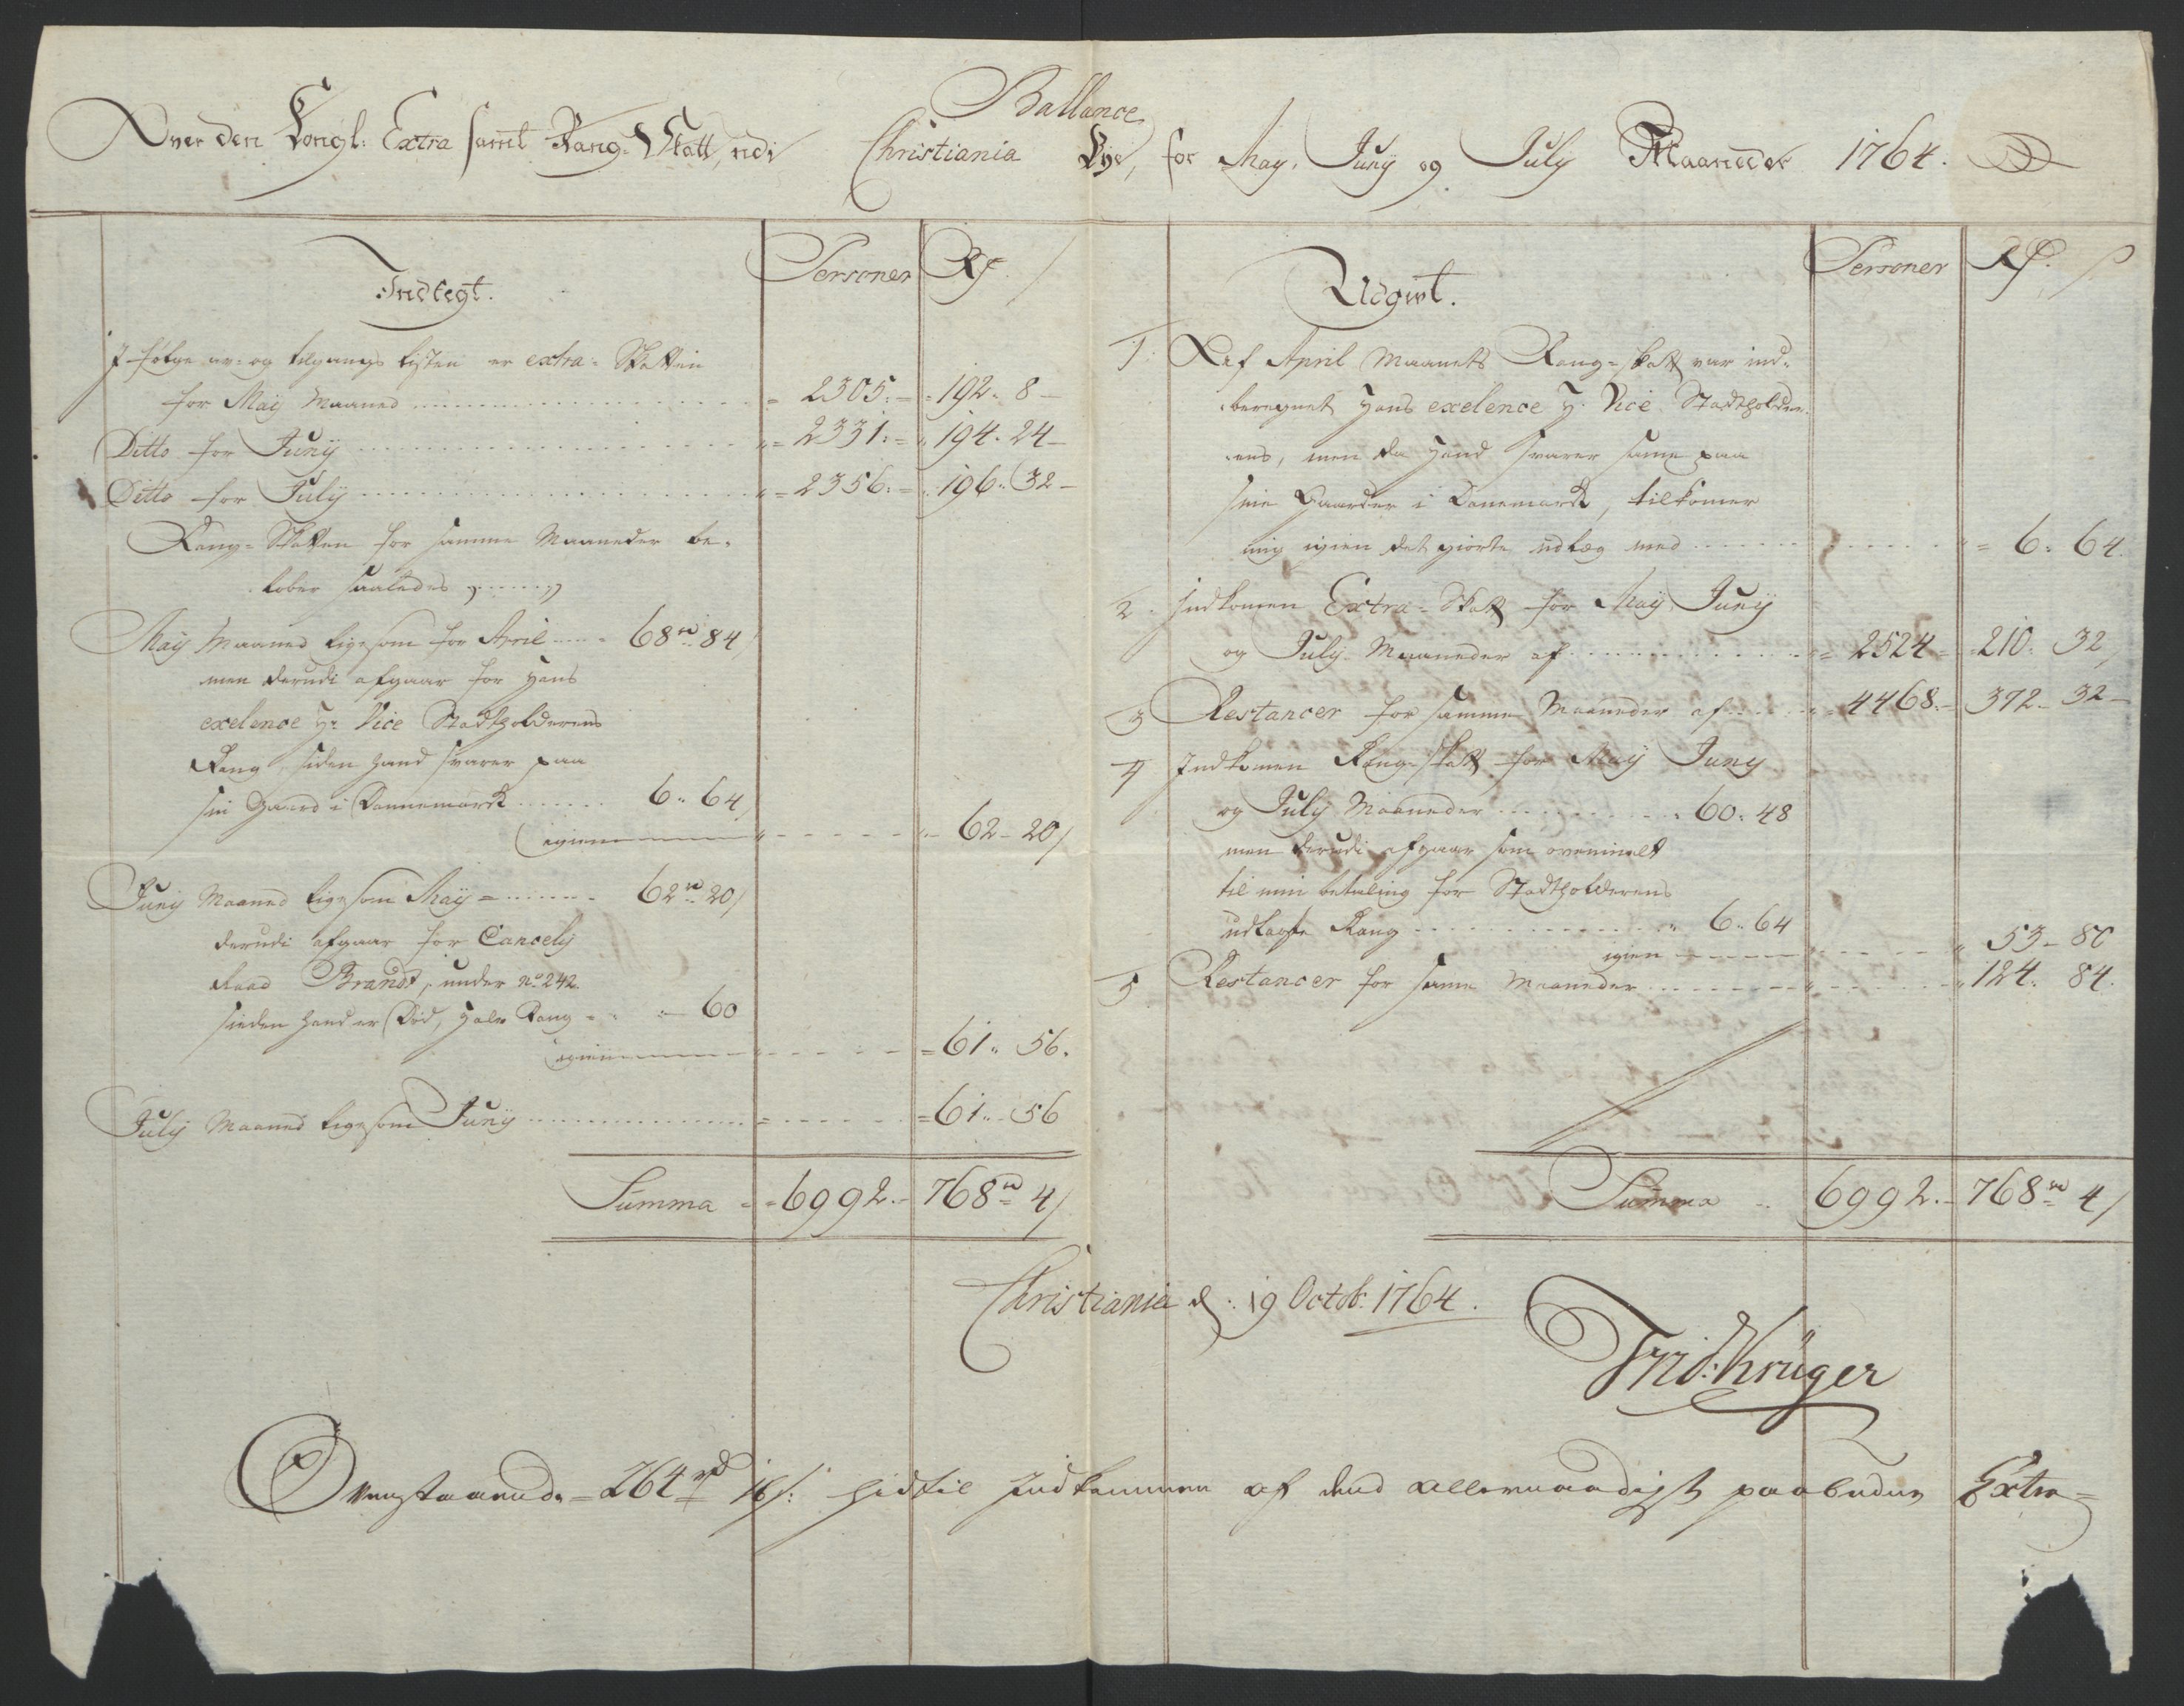 Ballance
Over den Kongl: Extra samt Rang-Skatt, udi Christiania Bye, for May, Juny og July Maaneder 1764.
Indtegt.
Personer
Rd
I følge av- og tilgangs listen er extra-Skatten
for May Maaned = 2305.= 192. 8
Ditto for Juny = 2331.= 194. 24
Ditto for July = 2356.= 196. 32
Rang-Skatten for samme Maaneder be-
løber saaledes
May Maaned ligesom for April 68 rd 84
men derudi afgaar for Hans
exelence Hr Vice Stadtholderens
Rang, siden hand svarer paa
sin Gaard i Dannemark 6. 64
igien 62- 20
Juny Maaned ligesom May 62 rd 20
derudi afgaar for Cancely
Raad Brandt, under No 242.
sieden hand er Død, halv Rang 60
igien 61. 56.
July Maaned ligesom Juny 61. 56
Summa 6992.- 768 rd 4
Udgivt.
Personer
Rd
1. Af April Maanets Rang-skatt var ind-
beregnet Hans exelence H: Vice Stadtholder-
ens, men da Hand svarer same paa
sine Gaarder i Danemark, tilkomer
mig igien det giorte udlæg med = 6. 64.
2. Indkomen Extra-Skatt for May, Juny
og July Maaneder af 2524 = 210. 32
3 Restancer for samme Maaneder af 4468.- 372- 32
4 Indkomen Rang-skatt for May Juny
og July Maaneder 60. 48
men derudi afgaar som ovenmelt
til min betaling for Stadtholderens
udlagte Rang 6. 64
igien 53- 80
5 Restancer for same Maaneder 124. 84.
Summa 6992.- 768 rd 4
Christiania d: 19 Octob: 1764.
Frid: Krüger
Ovenstaaende 264 rd 16 s: hidtil Indkommen af dend allernaadigst paabudne Extra-